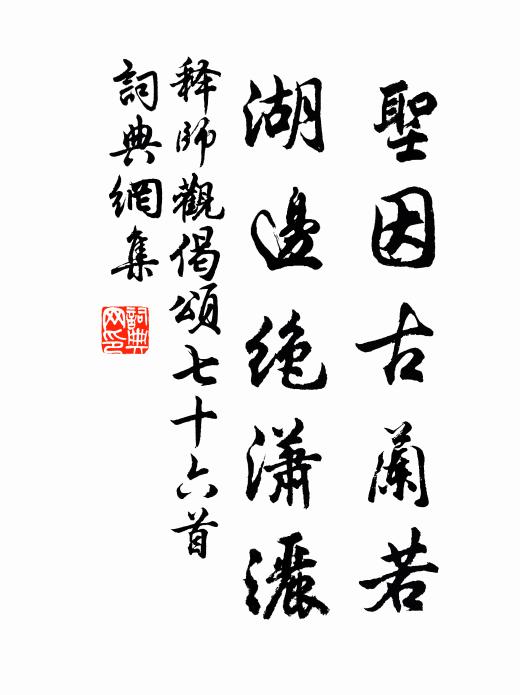 聖因古蘭若
湖邊絶瀟灑
释師觀偈頌七十六首
詞典網集
詞典网印